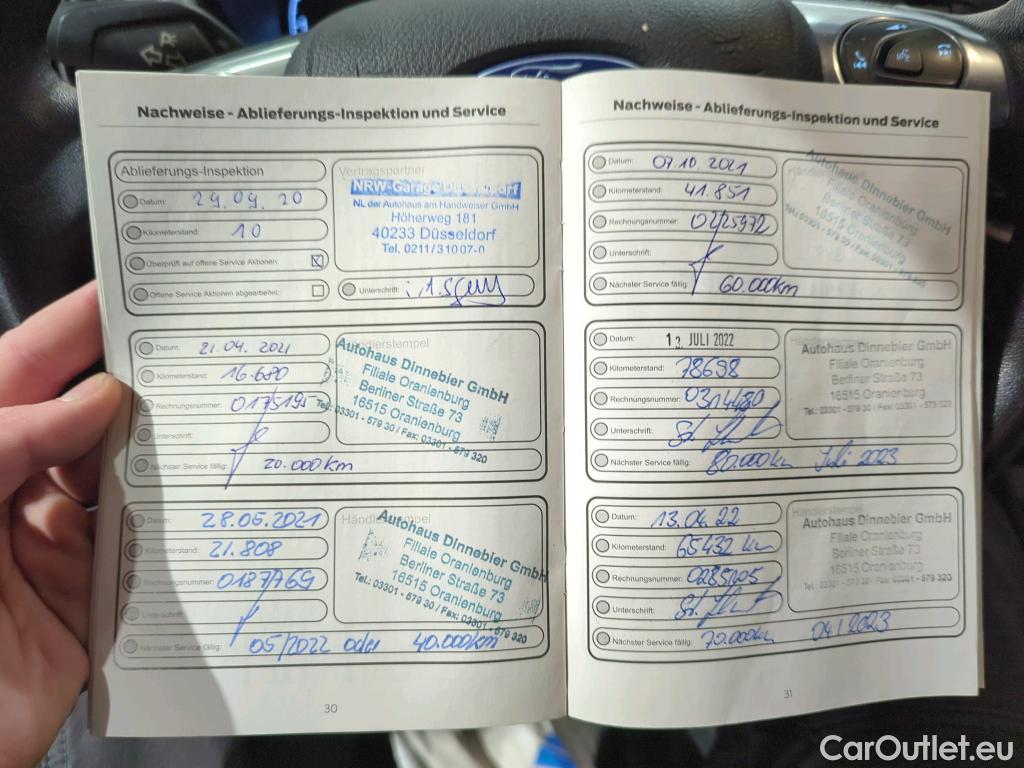 Ford
Nachweise - Ablieferungs-Inspektion und Service
Ablieferungs-Inspektion
Datum: 29.09.20
Kilometerstand: 10
Überprüft auf offene Service Aktionen: ☒
Offene Service Aktionen abgearbeitet: ☐
Vertragspartner
NRW-Garage Düsseldorf
NL der Autohaus am Handweiser GmbH
Höherweg 181
40233 Düsseldorf
Tel. 0211/31007-0
Unterschrift:
Datum: 21.04.2021
Kilometerstand: 16.680
Rechnungsnummer: 0175195
Unterschrift:
Nächster Service fällig: 20.000km
Händlerstempel
Autohaus Dinnebier GmbH
Filiale Oranienburg
Berliner Straße 73
16515 Oranienburg
Tel.: 03301 - 579 30 / Fax: 03301 - 579 320
Datum: 28.05.2021
Kilometerstand: 21.808
Rechnungsnummer: 0187769
Unterschrift:
Nächster Service fällig: 05/2022 oder 40.000km
Händlerstempel
Autohaus Dinnebier GmbH
Filiale Oranienburg
Berliner Straße 73
16515 Oranienburg
Tel.: 03301 - 579 30 / Fax: 03301 - 579 320
30
Nachweise - Ablieferungs-Inspektion und Service
Datum: 07.10.2021
Kilometerstand: 41.851
Rechnungsnummer: 0225972
Unterschrift:
Nächster Service fällig: 60.000km
Autohaus Dinnebier GmbH
Filiale Oranienburg
Berliner Straße 73
16515 Oranienburg
Tel.: 03301 - 579 30 / Fax: 03301 - 579 320
Datum: 13. JULI 2022
Kilometerstand: 78698
Rechnungsnummer: 0314480
Unterschrift:
Nächster Service fällig: 80.000km Juli 2023
Händlerstempel
Autohaus Dinnebier GmbH
Filiale Oranienburg
Berliner Straße 73
16515 Oranienburg
Tel.: 03301 - 579 30 / Fax: 03301 - 579 320
Datum: 13.04.22
Kilometerstand: 65432 km
Rechnungsnummer: 0285205
Unterschrift:
Nächster Service fällig: 70.000km 04/2023
Händlerstempel
Autohaus Dinnebier GmbH
Filiale Oranienburg
Berliner Straße 73
16515 Oranienburg
Tel.: 03301 - 579 30 / Fax: 03301 - 579 320
31
CarOutlet.eu